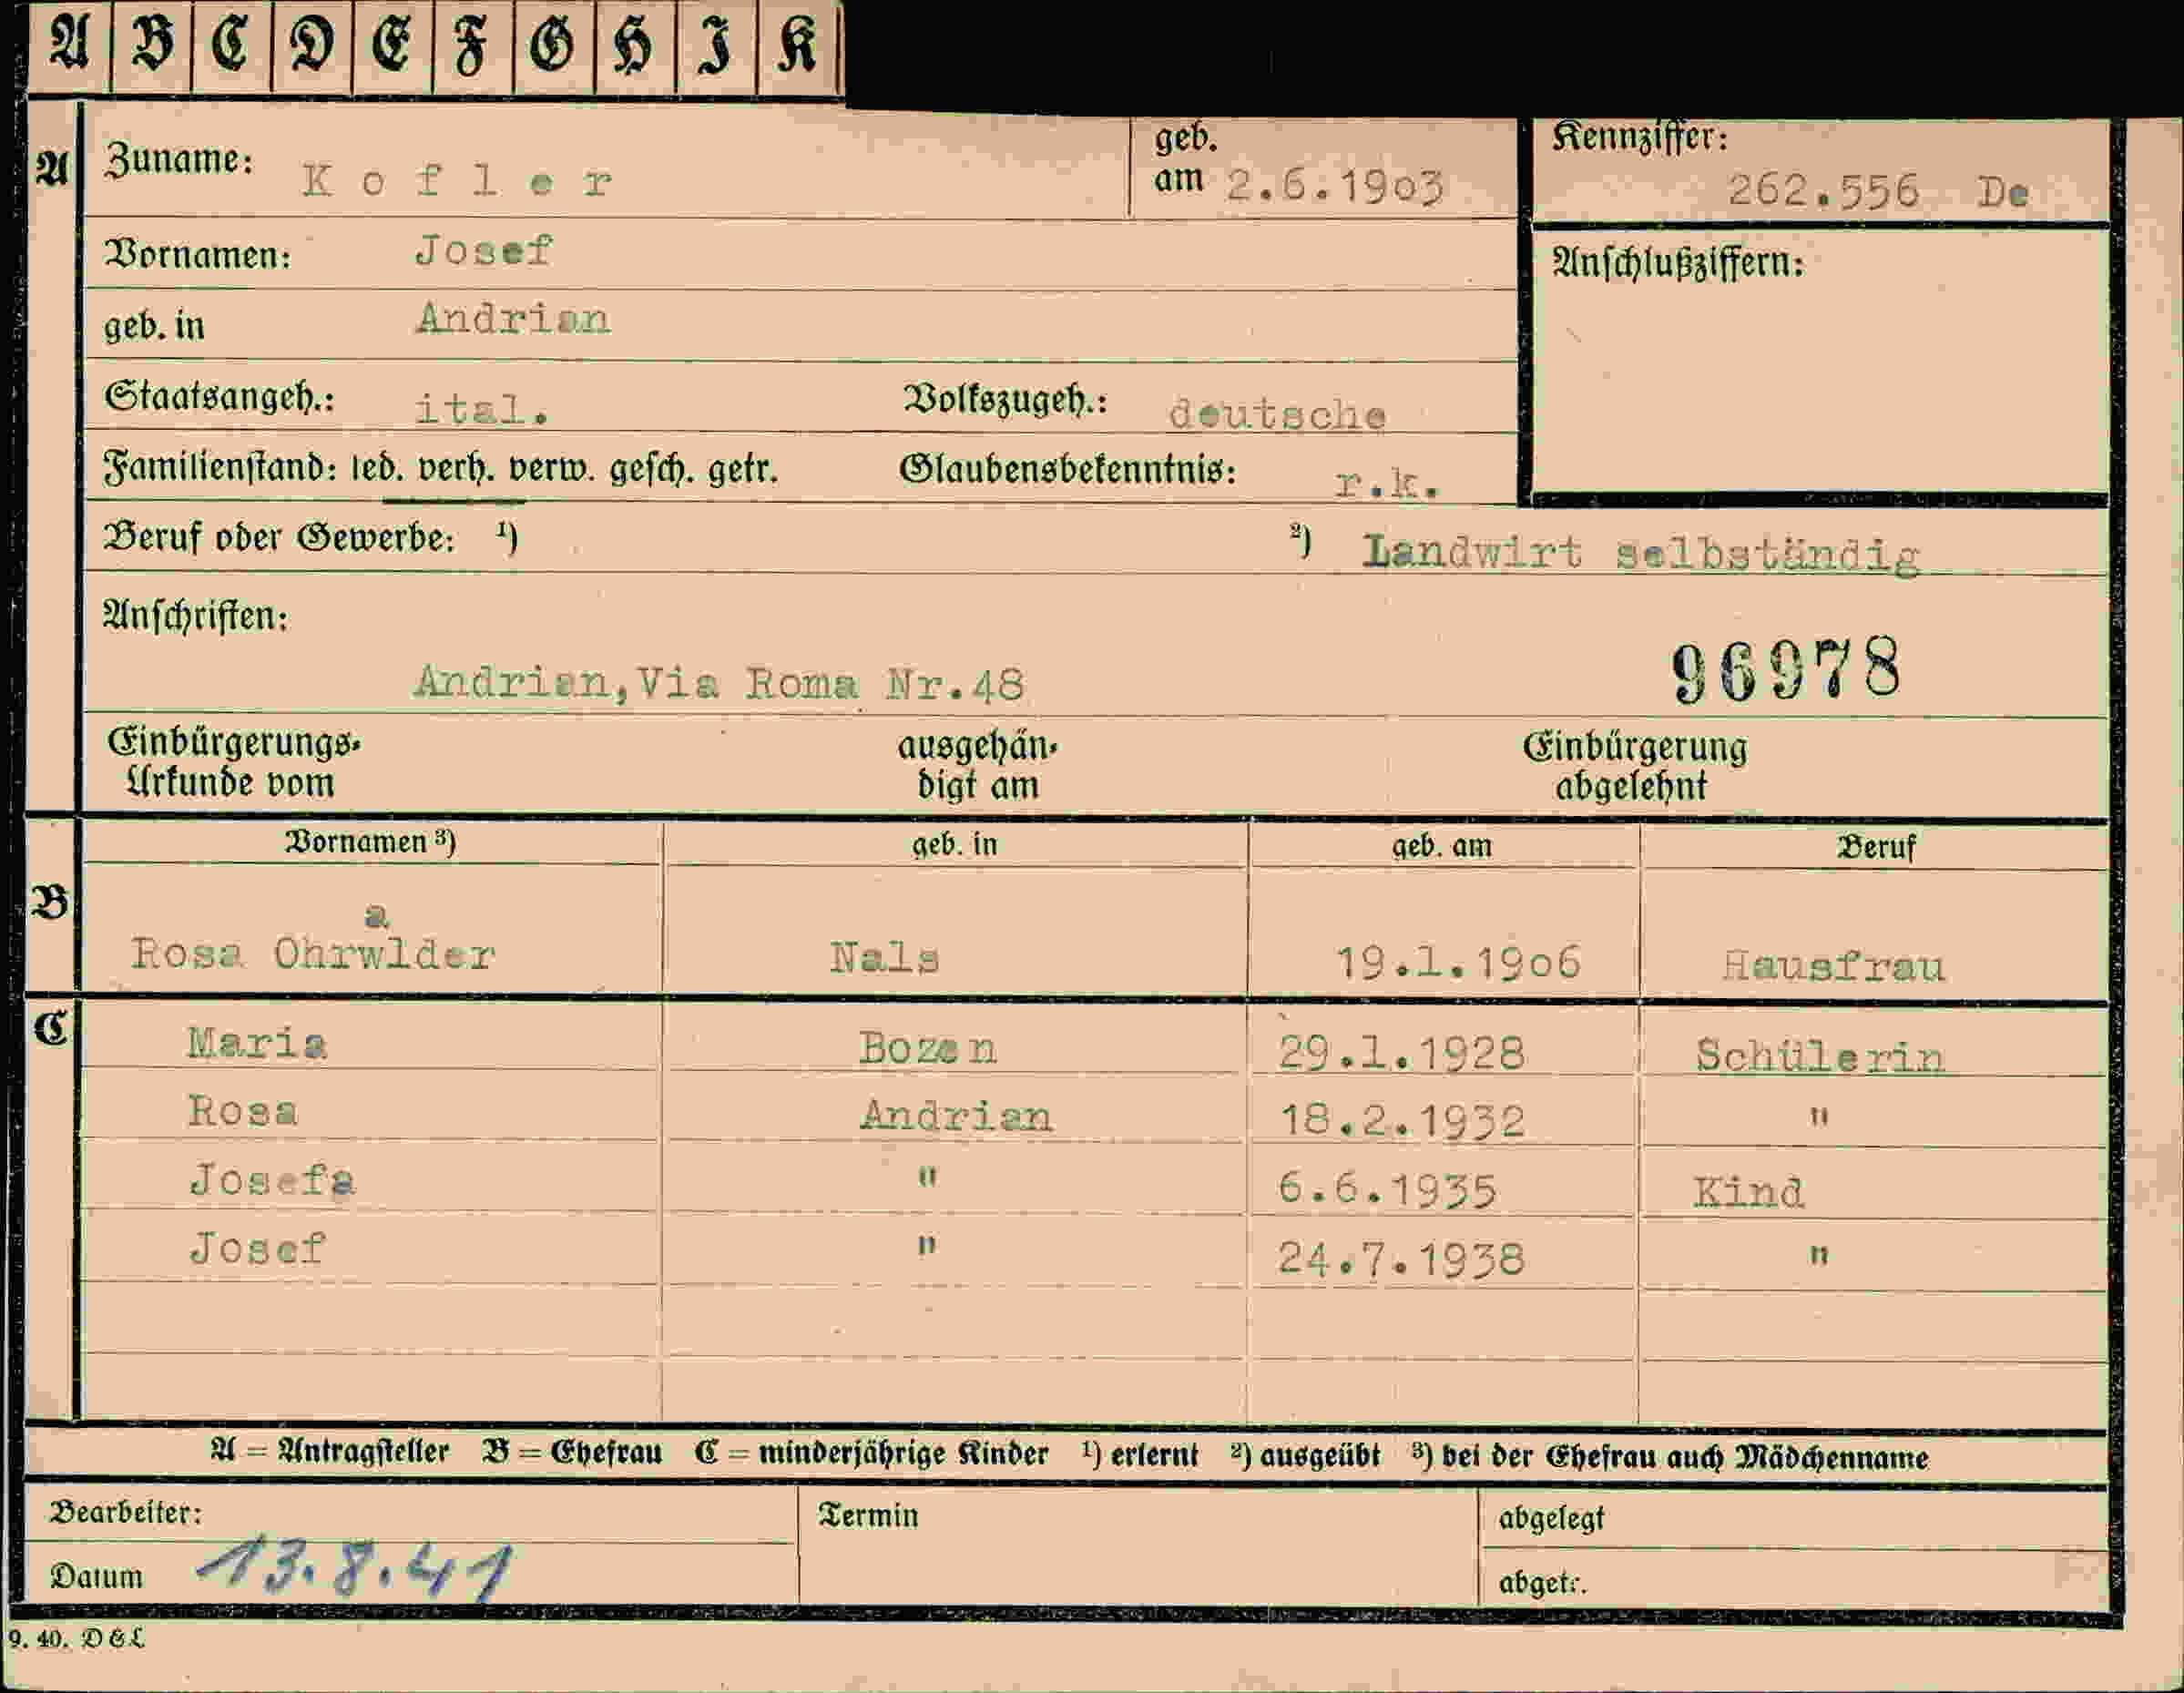 A B C D E F G H I K
A Zuname: Kofler geb. am 2.6.1903 Kennziffer: 262.556 De
Vornamen: Josef Anschlußziffern:
geb. in Andrian
Staatsangeh.: ital. Volkszugeh.: deutsche
Familienstand: led. verh. verw. gesch. getr. Glaubensbekenntnis: r.k.
Beruf oder Gewerbe: ¹) ²) Landwirt selbständig
Anschriften:
Andrian, Via Roma Nr.48 96978
Einbürgerungs- ausgehän- Einbürgerung
Urkunde vom digt am abgelehnt
Vornamen ³) geb. in geb. am Beruf
B
a
Rosa Ohrwlder Nals 19.1.1906 Hausfrau
C Maria Bozen 29.1.1928 Schülerin
Rosa Andrian 18.2.1932 "
Josefa " 6.6.1935 Kind
Josef " 24.7.1938 "
A = Antragsteller B = Ehefrau C = minderjährige Kinder ¹) erlernt ²) ausgeübt ³) bei der Ehefrau auch Mädchenname
Bearbeiter: Termin abgelegt
Datum 13.8.41 abgetr.
9. 40. D & L